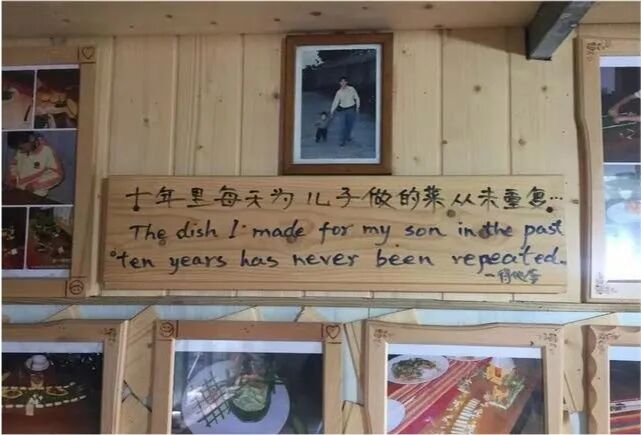 十年里每天为儿子做的菜从未重复…
The dish I made for my son in the past
ten years has never been repeated.